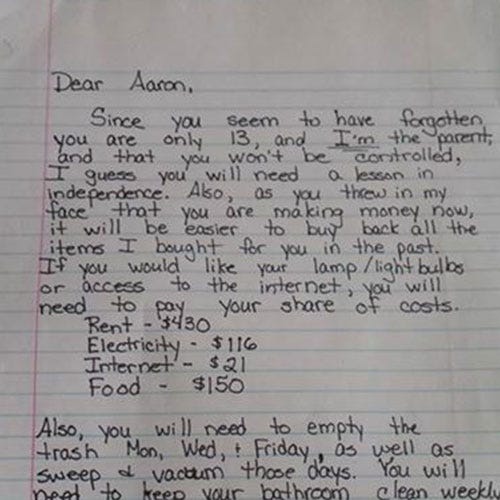 Dear Aaron,
Since you seem to have forgotten
you are only 13, and I'm the parent,
and that you won't be controlled,
I guess you will need a lesson in
independence. Also, as you threw in my
face that you are making money now,
it will be easier to buy back all the
items I bought for you in the past.
If you would like your lamp/lightbulbs
or access to the internet, you will
need to pay your share of costs.
Rent - $430
Electricity - $116
Internet - $21
Food - $150
Also, you will need to empty the
trash Mon, Wed, + Friday, as well as
sweep & vacuum those days. You will
need to keep your bathroom clean weekly